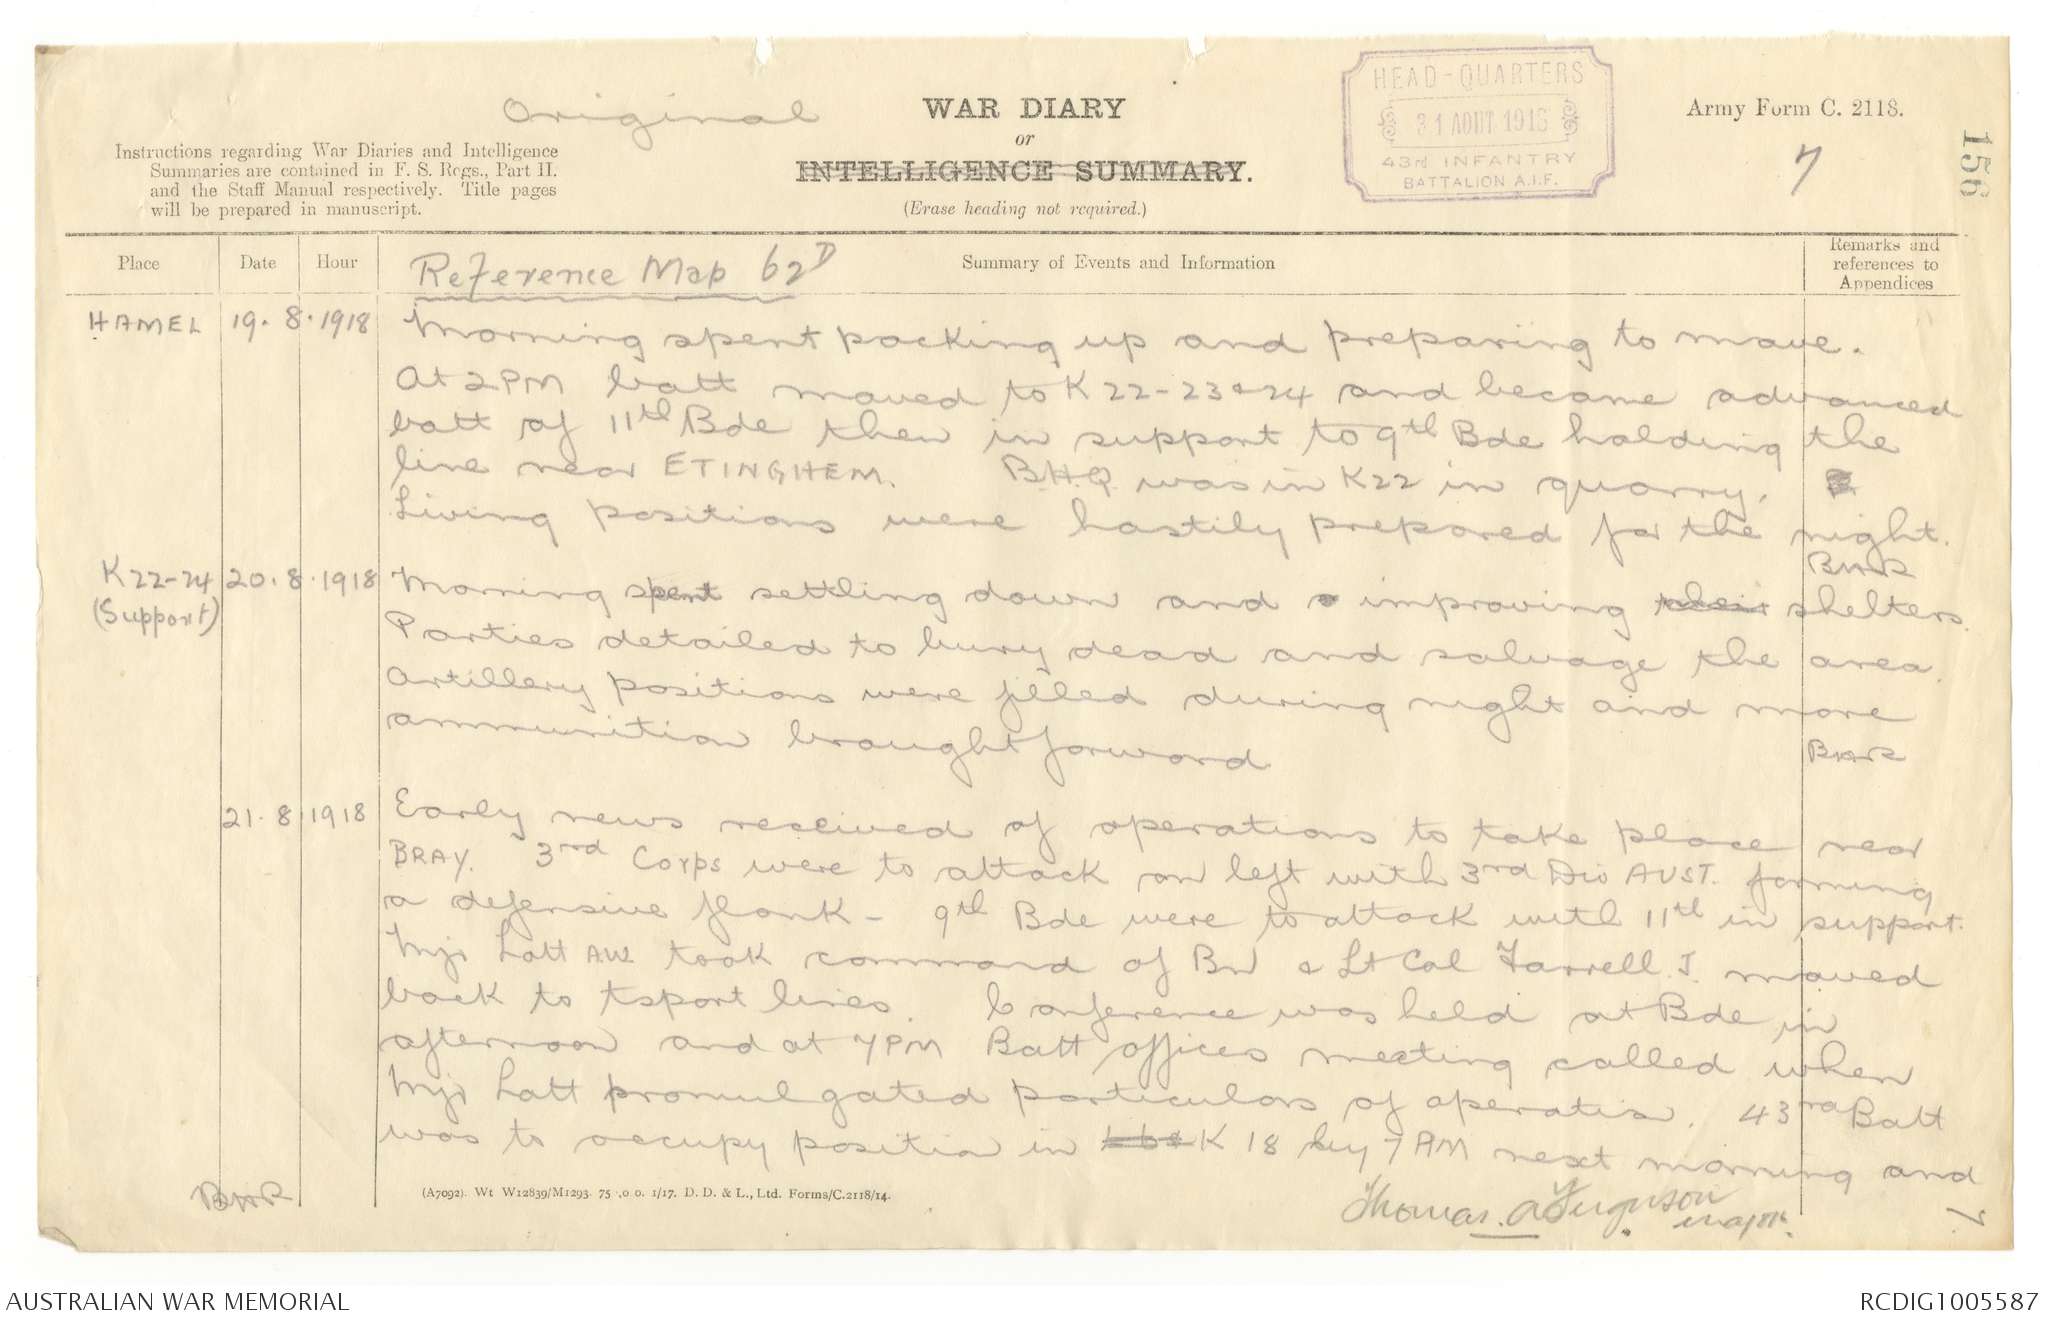 Original
WAR DIARY
or
INTELLIGENCE SUMMARY.
(Erase heading not required.)
Instructions regarding War Diaries and Intelligence
Summaries are contained in F. S. Regs., Part II.
and the Staff Manual respectively. Title pages
will be prepared in manuscript.
HEAD-QUARTERS
31 AOUT 1918
43RD INFANTRY
BATTALION A.I.F.
Army Form C. 2118.
7
156
Place
Date
Hour
Summary of Events and Information
Remarks and
references to
Appendices
Reference Map 62D
HAMEL 19.8.1918 Morning spent packing up and preparing to move.
At 2PM batt moved to K22-23&24 and became advanced
batt of 11th Bde then in support to 9th Bde holding the
line near ETINGHEM. B.H.Q. was in K22 in quarry.
Living positions were hastily prepared for the night.
BHR
K22-24 20.8.1918 Morning spent settling down and improving their shelters.
(Support)
Parties detailed to bury dead and salvage the area.
Artillery positions were filled during night and more
ammunition brought forward
BHR
21.8.1918 Early news received of operations to take place near
BRAY. 3rd Corps were to attack on left with 3rd Div AUST. forming
a defensive flank - 9th Bde were to attack with 11th in support.
Mjr Lott AW took command of Bn & Lt Col Farrell J. moved
back to tsport lines. Conference was held at Bde in
afternoon and at 7PM Batt offices meeting called when
Mjr Lott promulgated particulars of operatin. 43rd Batt
was to occupy position in K 18 by 7 AM next morning and
BHR
(A7092). Wt W12839/M1293. 75 ,0 0. 1/17. D. D. & L., Ltd. Forms/C.2118/14.
Thomas. A Ferguson
major.
7
AUSTRALIAN WAR MEMORIAL
RCDIG1005587